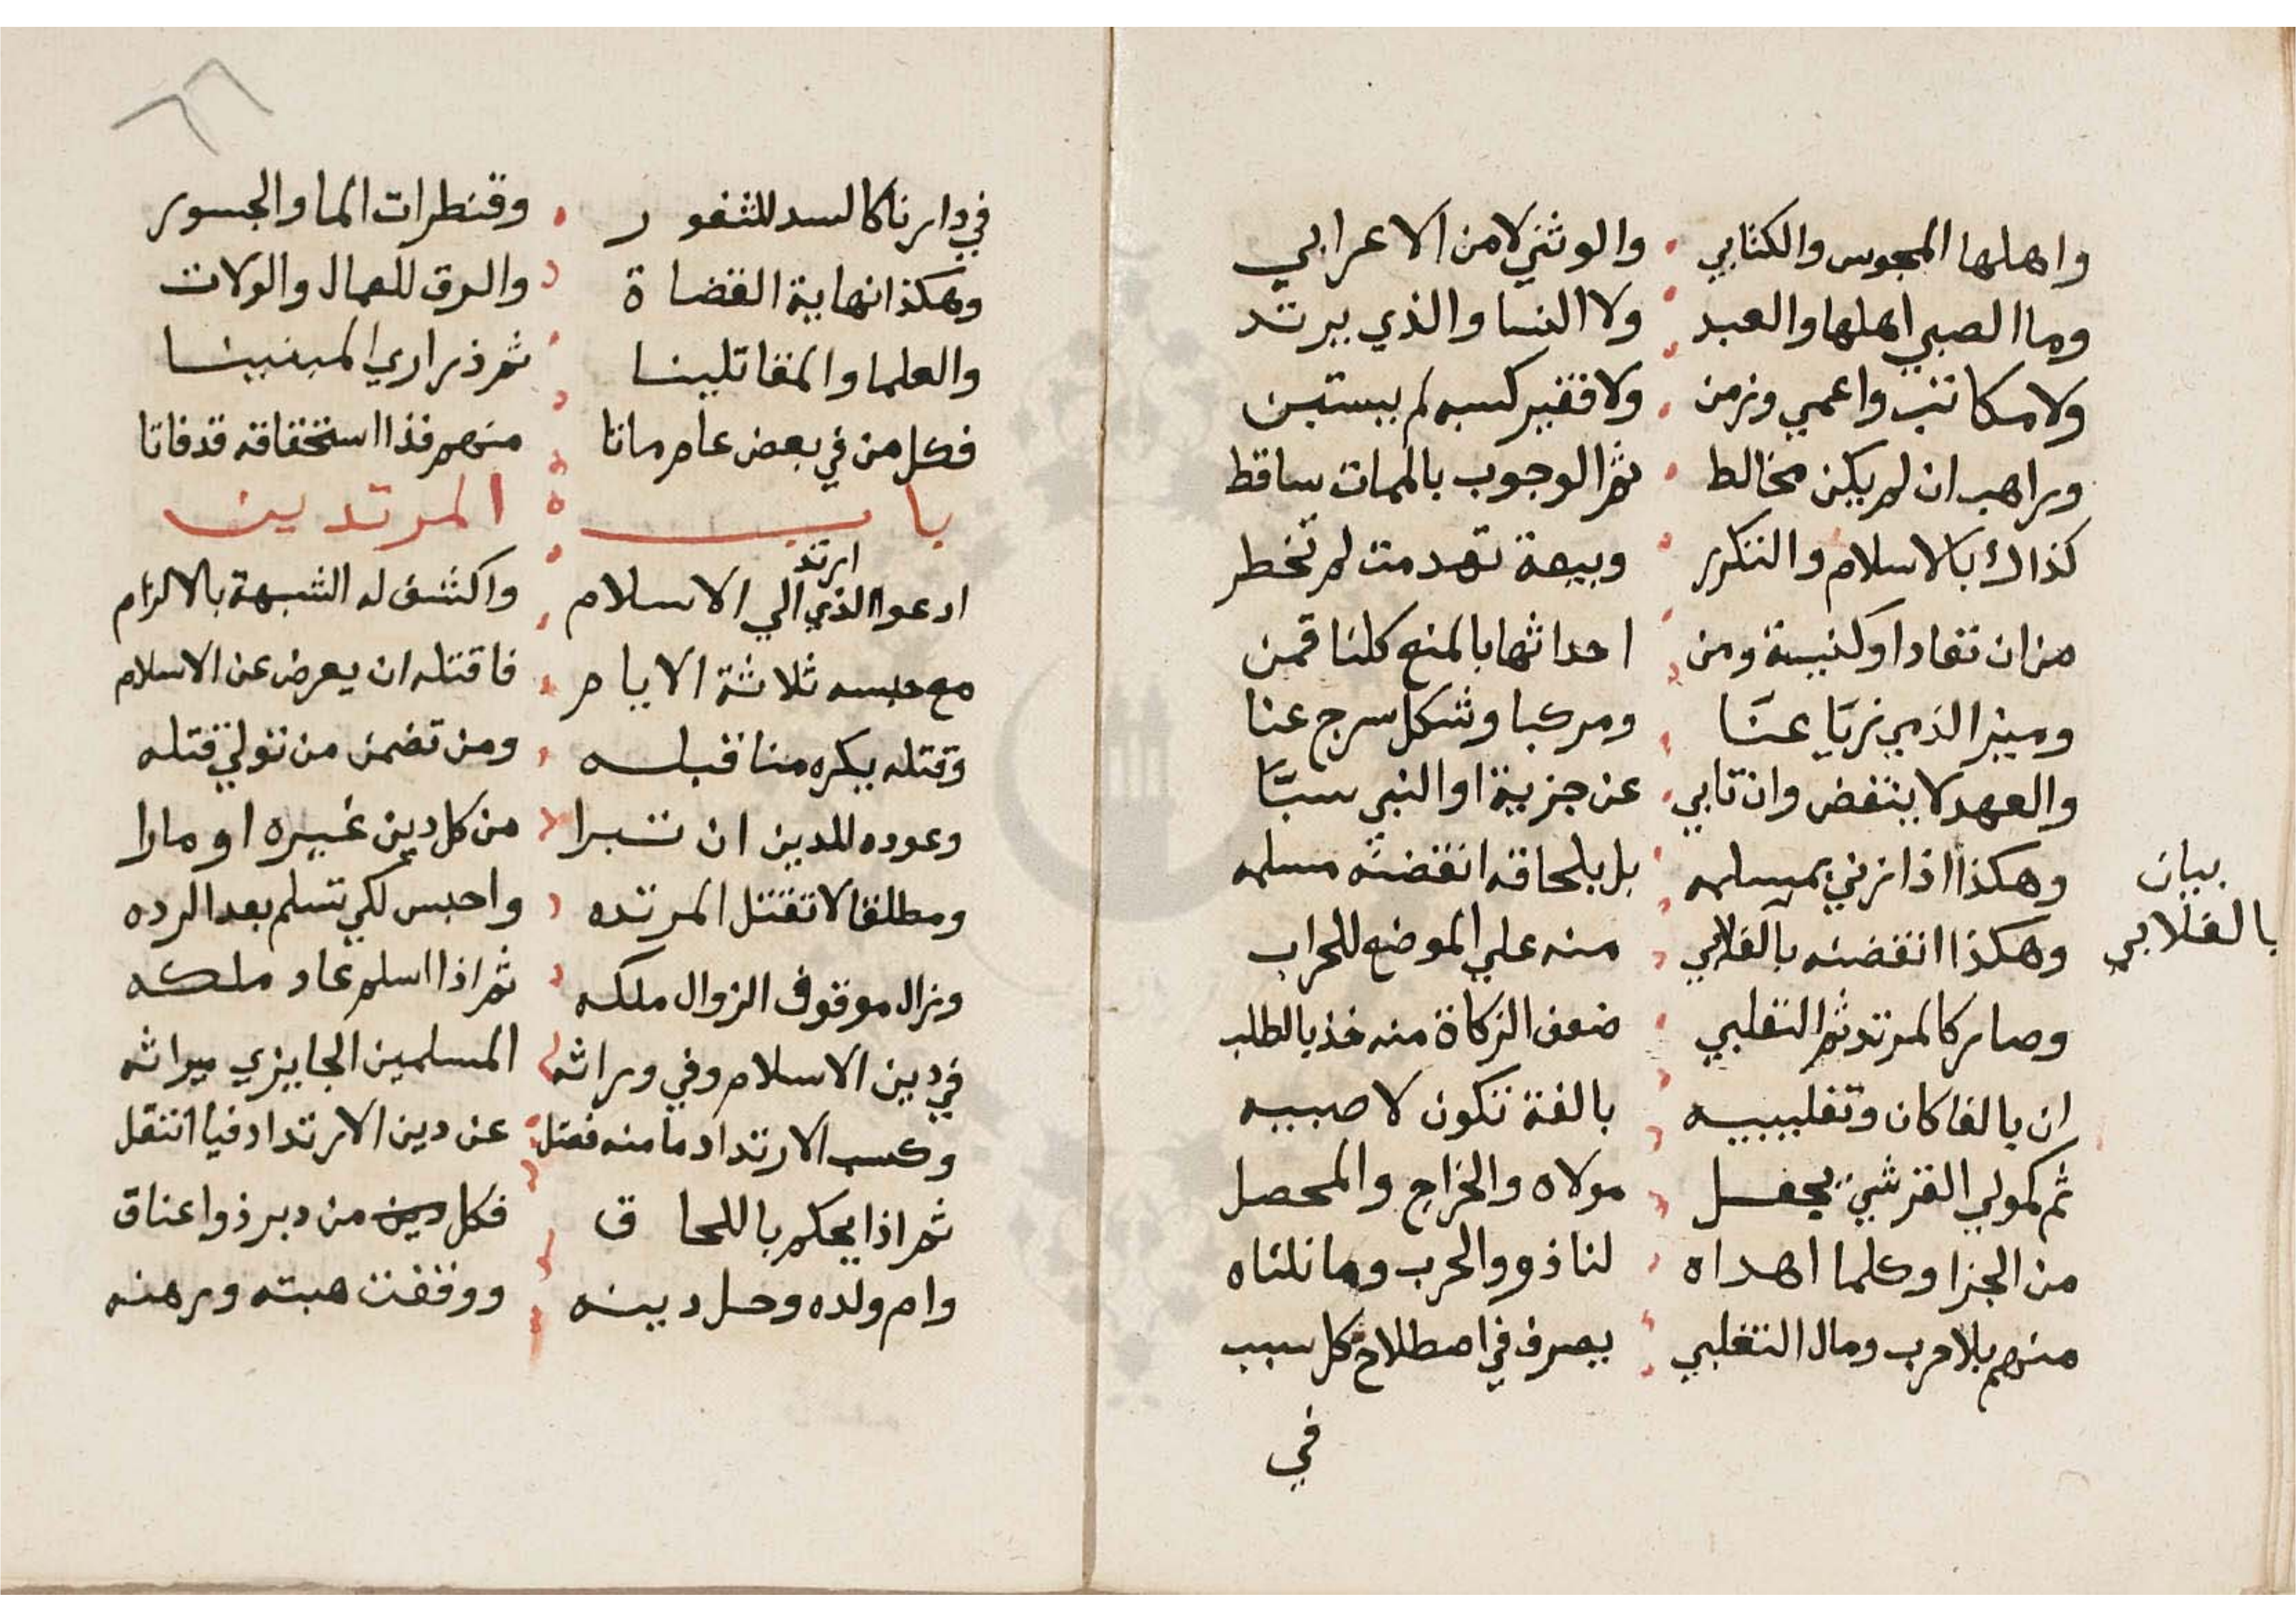 واهلها المجوس والكتابي والوثني لا من الاعرابي
وما الصبي اهلها والعبد ولا النسا والذي يرتد
ولا مكاتب واعمي وزمن ولا فقير كسبه لم يستبن
وراهب ان لم يكن مخالط ثم الوجوب بالممات ساقط
كذاك بالاسلام والتكرر وبيعة تهدمت لم تخطر
من ان تعادا وكنيسة ومن احداثها بالمنع كلنا قمن
وميز الذمي زيا عنا ومركبا وشكل سرج عنا
والعهد لا ينتقض وان تابي عن جزية او النبي سبا
وهكذا اذا زني بمسلمه بل بلحاقه انقضته مسلمه
بيان
وهكذا انقضنه بالغلاب منه علي الموضع للحراب
بالغلابي
وصار كالمرتد ثم التغلبي ضعف الزكاة منه خذ بالطلب
ان بالغا كان وتغلبييه بالغة تكون لا صبييه
ثم كمولي القرشي يجعل مولاه والخراج والمحصل
من الجزا وكلما اهداه لنا ذوو الحرب وما نلناه
منهم بلا حرب ومال التغلبي يصرف في اصطلاح كل سبب
في
٦٦
في دارنا كالسد للثغور وقنطرات الما والجسور
وهكذا نهاية القضاة والرق للعمال والولات
والعلما والمقاتلينا ثم ذراري المبنيينا
فكل من في بعض عام ماتا منهم فذا استحقاقه قد فاتا
باب المرتدين
ارتد
ادعوا الذي الي الاسلام واكشف له الشبهة بالالزام
مع حبسه ثلاثة الايام فاقتله ان يعرض عن الاسلام
وقتله يكره منا قبله ومن تضمن من تولي قتله
وعوده للدين ان تبرا من كل دين غيره او مارا
ومطلقا لا تقتل المرتده واحبس لكي تسلم بعد الرده
وزال موقوف الزوال ملكه ثم اذا اسلم عاد ملكه
في دين الاسلام وفي وراثه المسلمين الجايزي ميراثه
وكسب الارتداد ما منه فعتل عن دين الارتداد فيا انتقل
ثم اذا يحكم باللحاق فكل دين من دبر ذوا عتاق
وام ولده وحل دينه ووقفت هبته ورهنه